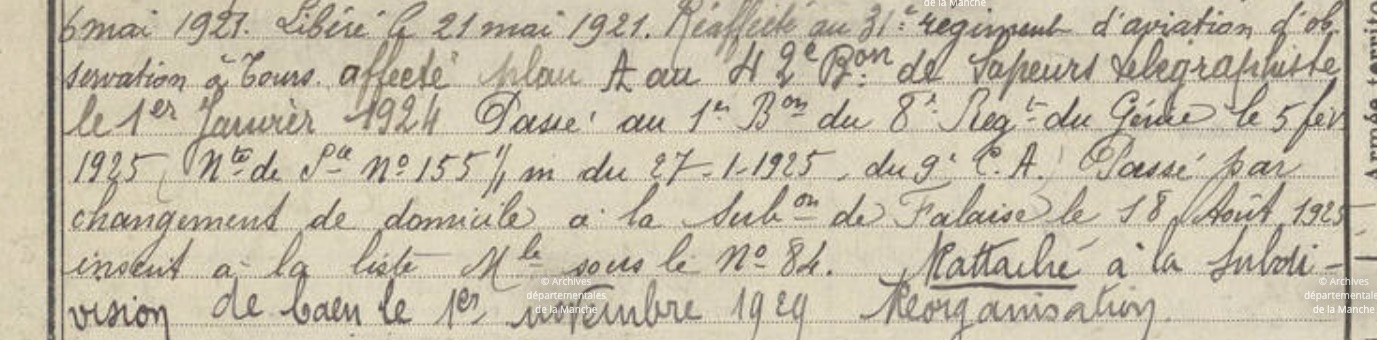 6 mai 1921. Libéré le 21 mai 1921. Réaffecté au 31e regiment d'aviation d'ob
servation à Tours. affecté plan A au 42e Bon de Sapeurs telegraphiste
le 1er Janvier 1924 Passé au 1er Bon du 8e Regt du Génie le 5 fév
1925 (Nte de Sce No 155 1/m du 27-1-1925, du 9e C.A.) Passé par
changement de domicile à la Subon de Falaise le 18 Août 1925
inscrit à la liste Mle sous le No 84. Rattaché à la Subdi-
vision de Caen le 1er novembre 1929 Réorganisation.
© Archives
départementales
de la Manche
© Archives
départementales
de la Manche
de la Manche
Armée territo